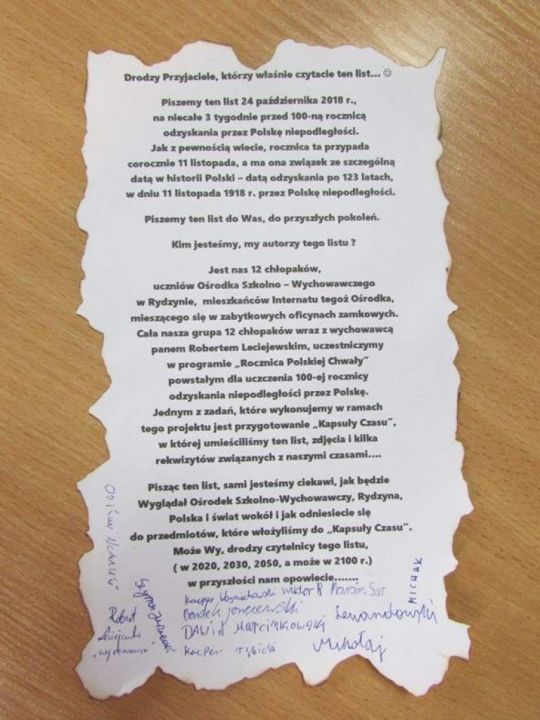 Drodzy Przyjaciele, którzy właśnie czytacie ten list... ☺
Piszemy ten list 24 października 2018 r.,
na niecałe 3 tygodnie przed 100-ną rocznicą
odzyskania przez Polskę niepodległości.
Jak z pewnością wiecie, rocznica ta przypada
corocznie 11 listopada, a ma ona związek ze szczególną
datą w historii Polski – datą odzyskania po 123 latach,
w dniu 11 listopada 1918 r. przez Polskę niepodległości.
Piszemy ten list do Was, do przyszłych pokoleń.
Kim jesteśmy, my autorzy tego listu ?
Jest nas 12 chłopaków,
uczniów Ośrodka Szkolno – Wychowawczego
w Rydzynie, mieszkańców Internatu tegoż Ośrodka,
mieszącego się w zabytkowych oficynach zamkowych.
Cała nasza grupa 12 chłopaków wraz z wychowawcą
panem Robertem Leciejewskim, uczestniczymy
w programie „Rocznica Polskiej Chwały”
powstałym dla uczczenia 100-ej rocznicy
odzyskania niepodległości przez Polskę.
Jednym z zadań, które wykonujemy w ramach
tego projektu jest przygotowanie „Kapsuły Czasu”,
w której umieściliśmy ten list, zdjęcia i kilka
rekwizytów związanych z naszymi czasami....
Pisząc ten list, sami jesteśmy ciekawi, jak będzie
Wyglądał Ośrodek Szkolno-Wychowawczy, Rydzyna,
Polska i świat wokół i jak odniesiecie się
do przedmiotów, które włożyliśmy do „Kapsuły Czasu”.
Może Wy, drodzy czytelnicy tego listu,
( w 2020, 2030, 2050, a może w 2100 r.)
w przyszłości nam opowiecie.......
Kacper Wiktor B
MICHAŁ
Lewandowski
Robert
DAWID MARCINKOWSKI
wychowawca
Kacper
Mikołaj